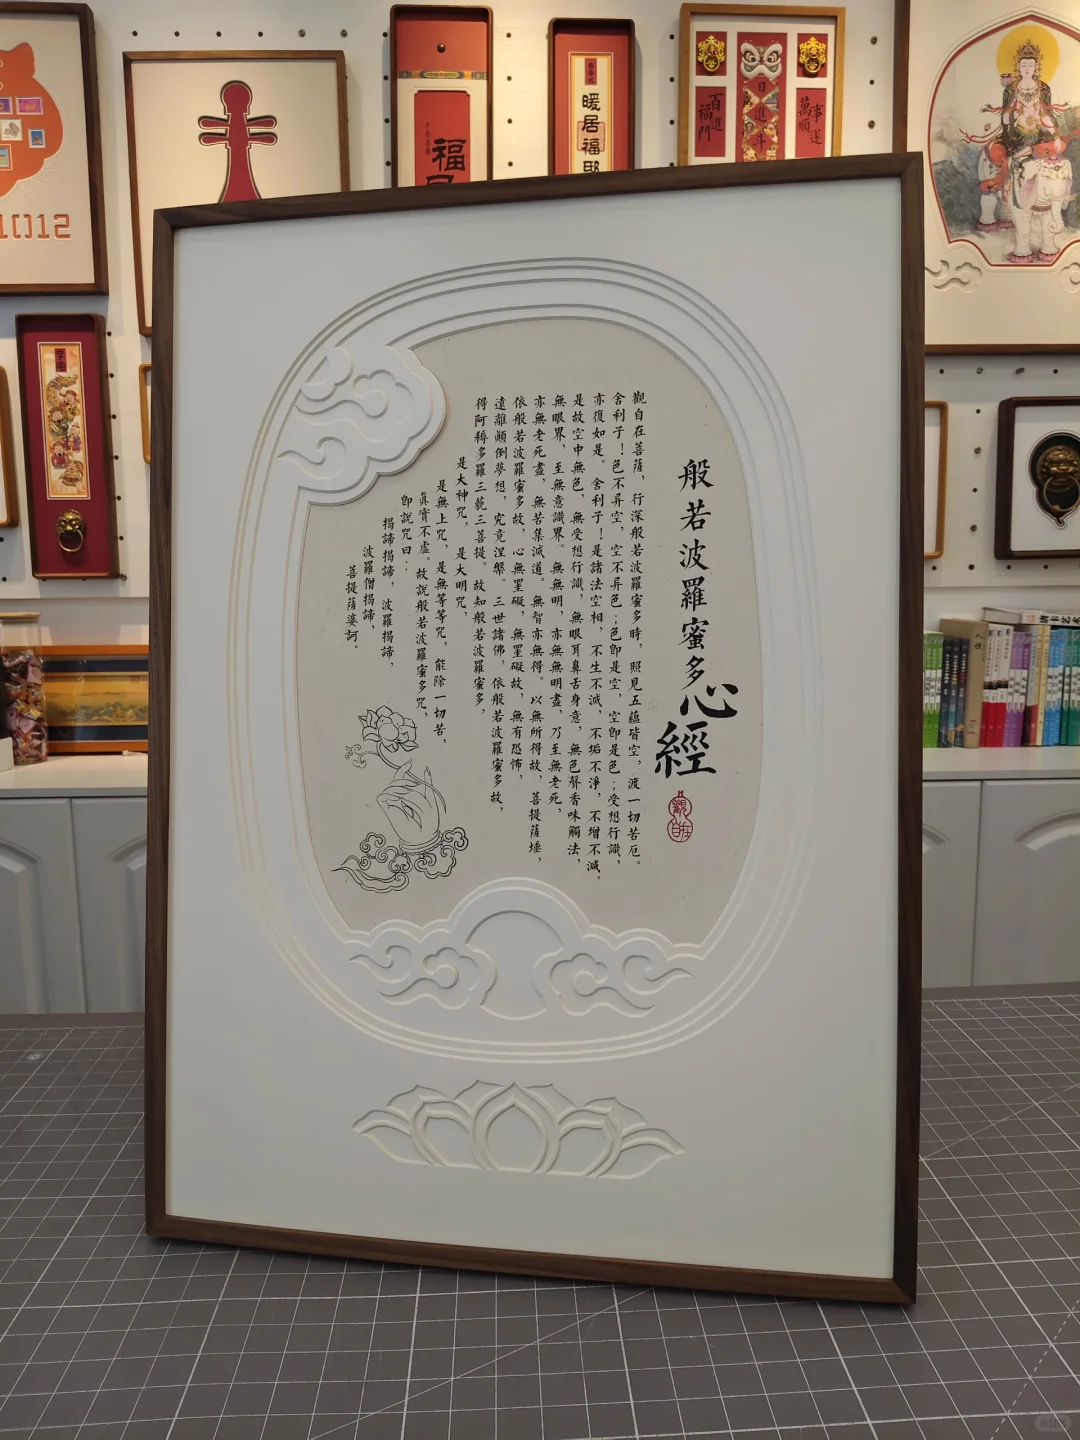 般若波羅蜜多心經
觀自在
觀自在菩薩，行深般若波羅蜜多時，照見五蘊皆空，渡一切苦厄。
舍利子！色不异空，空不异色；色即是空，空即是色；受想行識，
亦復如是。舍利子！是諸法空相，不生不滅，不垢不淨，不增不減。
是故空中無色，無受想行識，無眼耳鼻舌身意，無色聲香味觸法，
無眼界，至無意識界。無無明，亦無無明盡，乃至無老死，
亦無老死盡，無苦集滅道。無智亦無得。以無所得故，菩提薩埵，
依般若波羅蜜多故，心無罣礙，無罣礙故，無有恐怖，
遠離顛倒夢想，究竟涅槃。三世諸佛，依般若波羅蜜多故，
得阿耨多羅三藐三菩提。故知般若波羅蜜多，
是大神咒，是大明咒，
是無上咒，是無等等咒，能除一切苦，
真實不虛。故說般若波羅蜜多咒，
即說咒曰：
揭諦揭諦，波羅揭諦，
波羅僧揭諦，
菩提薩婆訶。
1012
福
暖居福邸
萬事順遂
日進斗
百福進門